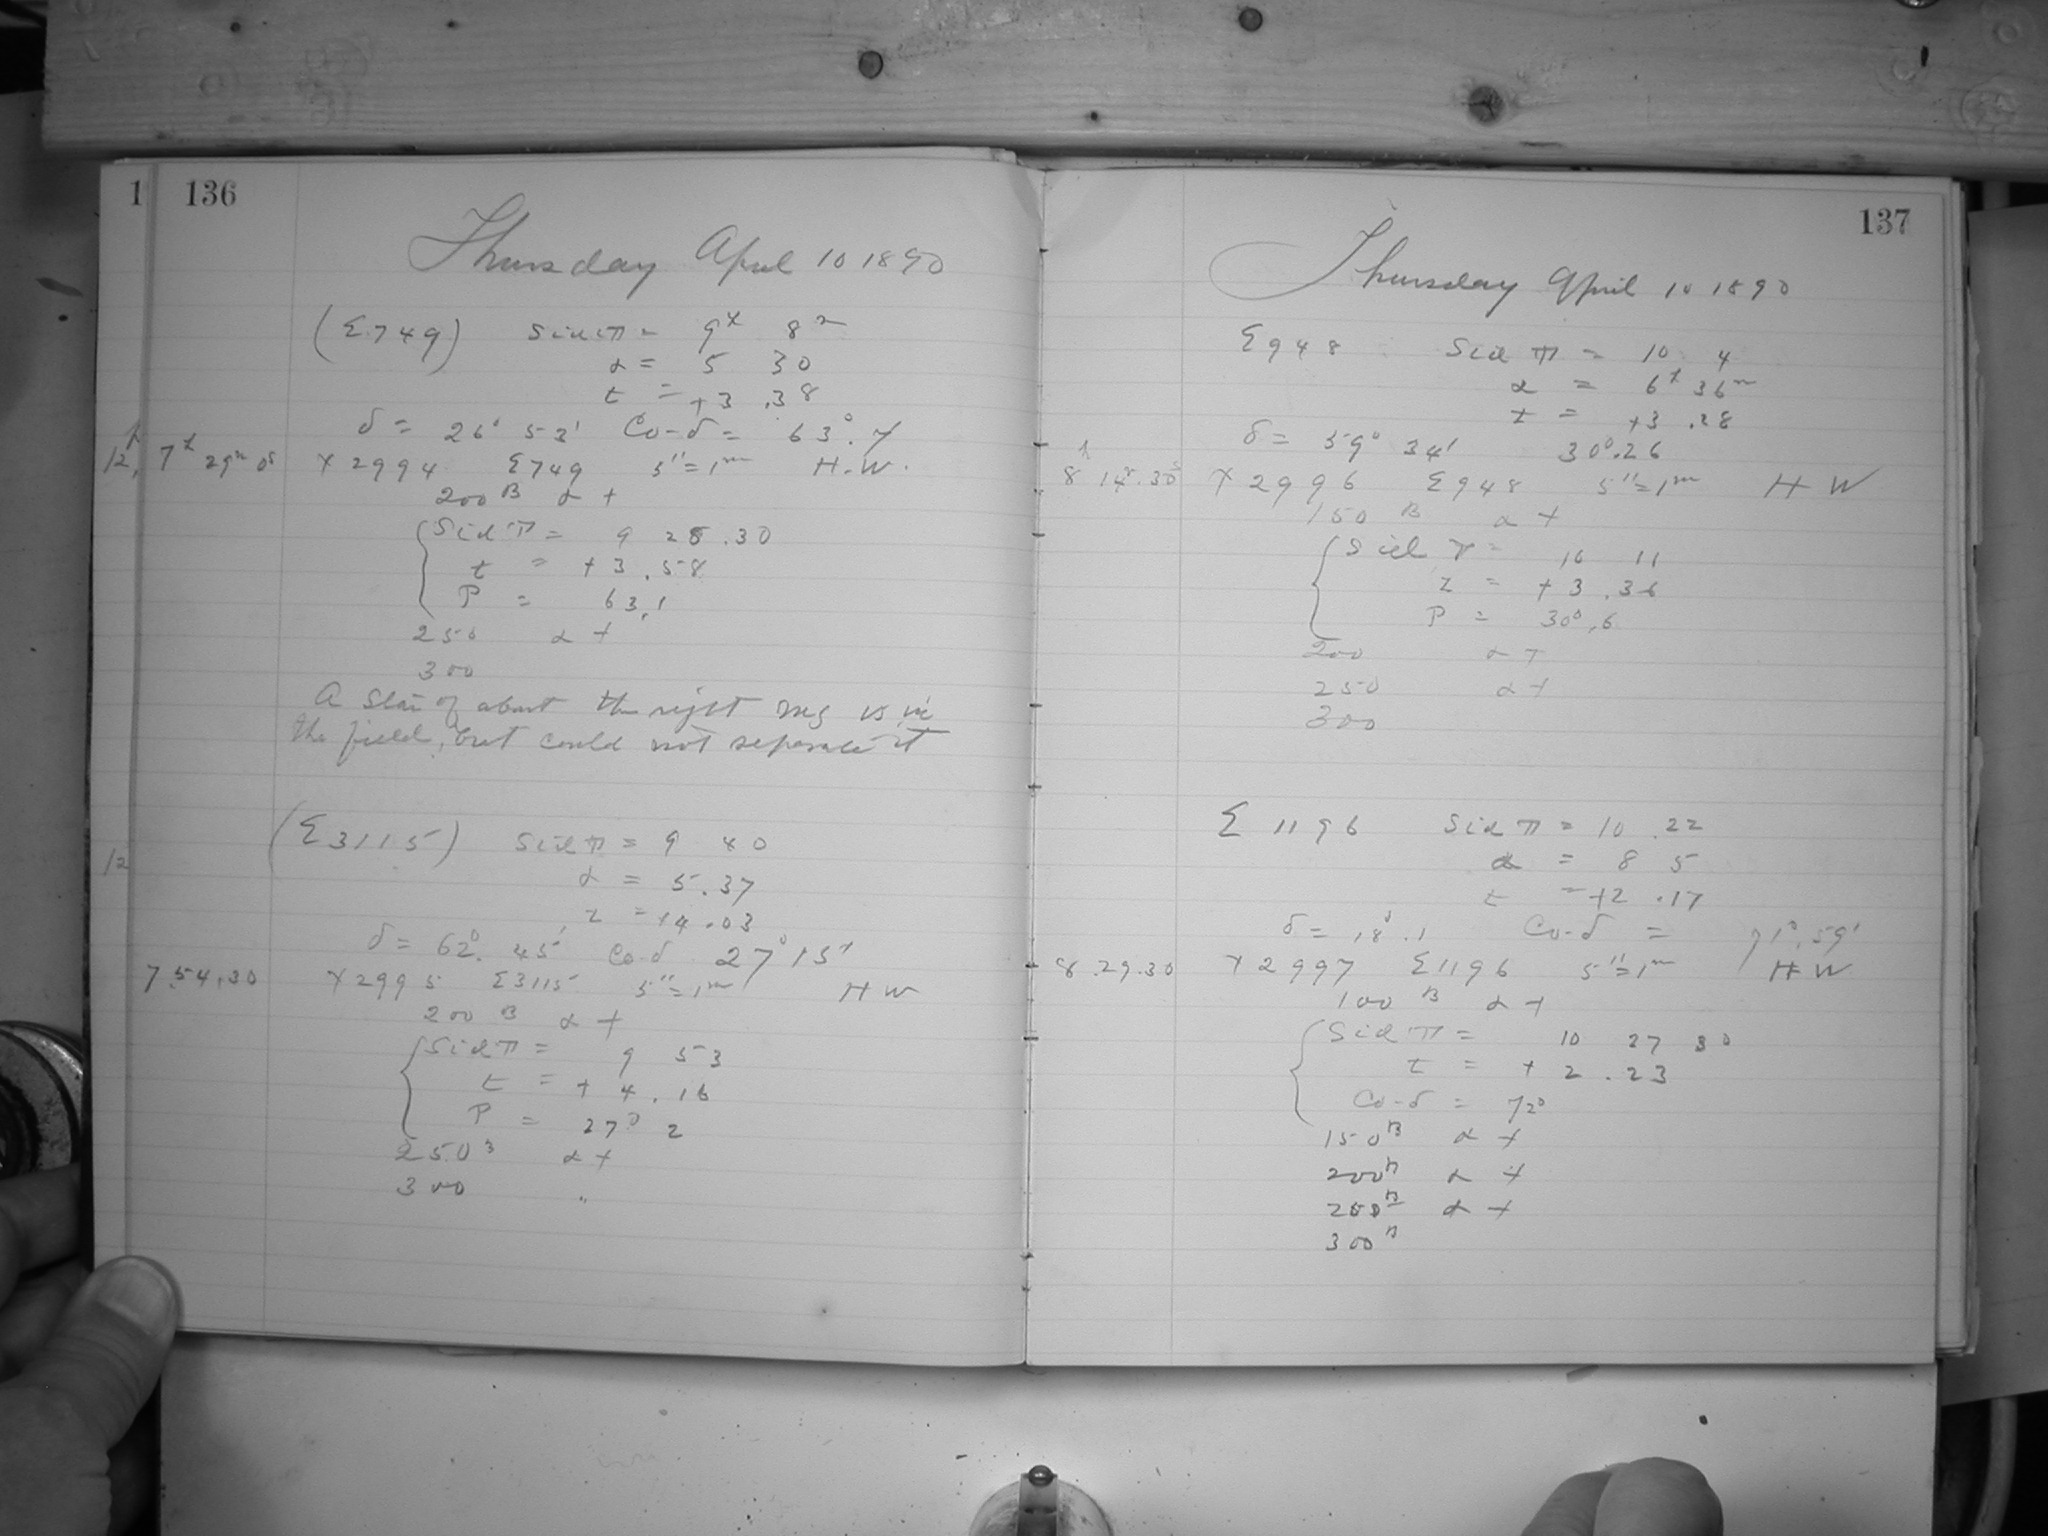 1 136
Thursday April 10 1890
(Σ749) Sid T = 9h 8m
α = 5 30
t = +3 .38
δ = 26° 53' Co-δ = 63°.7
12h, 7h 29m 0s X 2994 Σ749 5"=1m H.W.
200 B α +
Sid T = 9 28.30
t = +3.58
P = 63.1
250 α +
300
A Star of about the right mg is in
the field, but could not separate it
(Σ3115) Sid T = 9 40
12
α = 5.37
t = +4.03
δ = 62°. 45' Co-δ 27° 15'
7.54.30 X 2995 Σ3115 5"=1m H W
200 B α +
Sid T = 9 53
t = + 4.16
P = 27° 2
250 B α +
300 "
137
Thursday April 10 1890
Σ948 Sid T = 10 4
α = 6h 36m
t = +3 .28
δ = 59° 34' 30°.26
8h 14m.30s X 2996 Σ948 5"=1m H W
150 B α +
Sid T = 10 11
t = +3 .36
P = 30°.6
200 α +
250 α +
300
Σ 1196 Sid T = 10 .22
α = 8 5
t = +2 .17
δ = 18°.1 Co-δ = 71°.59'
8.29.30 X 2997 Σ1196 5"=1m H W
100 B α +
Sid T = 10 27 30
t = + 2.23
Co-δ = 72°
150 B α +
200 B α +
250 B α +
300 B